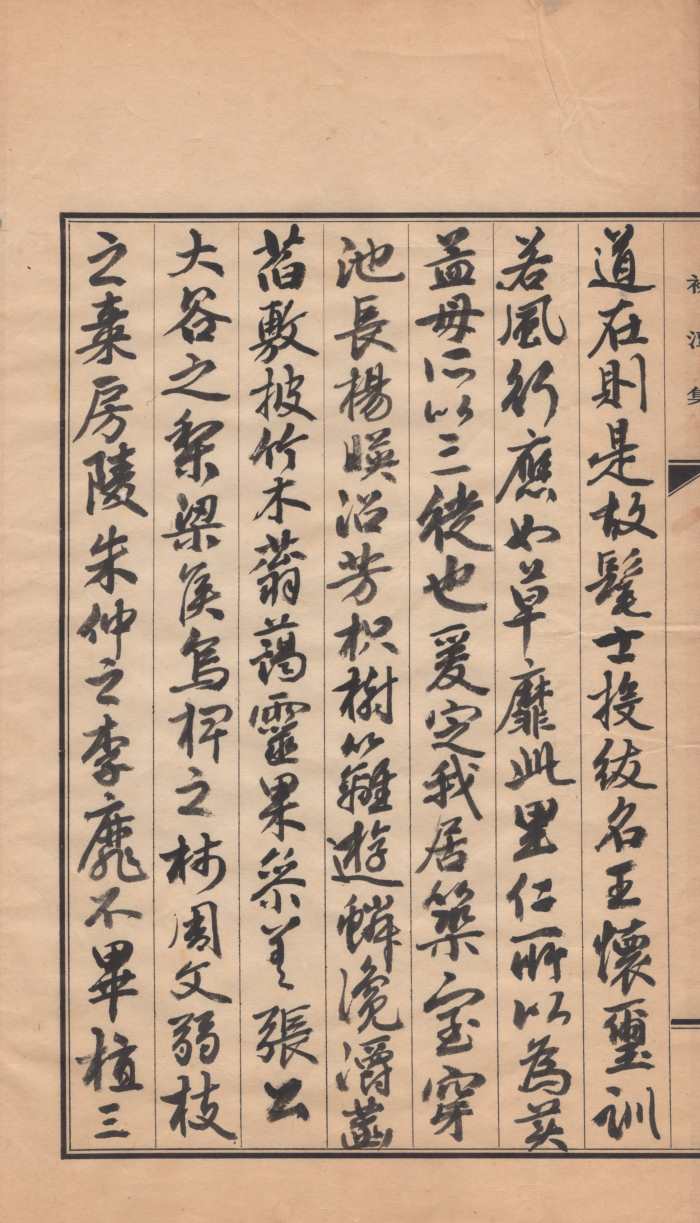 集
道在則是故髦士投紱名王懷璽訓
若風行應如草靡此里仁所以為美
孟母所以三徙也爰定我居築室穿
池長楊暎沼芳枳樹籬遊鱗瀺灂菡
萏敷披竹木蓊藹靈果參差張公
大谷之梨梁侯烏椑之柿周文弱枝
之棗房陵朱仲之李靡不畢植三